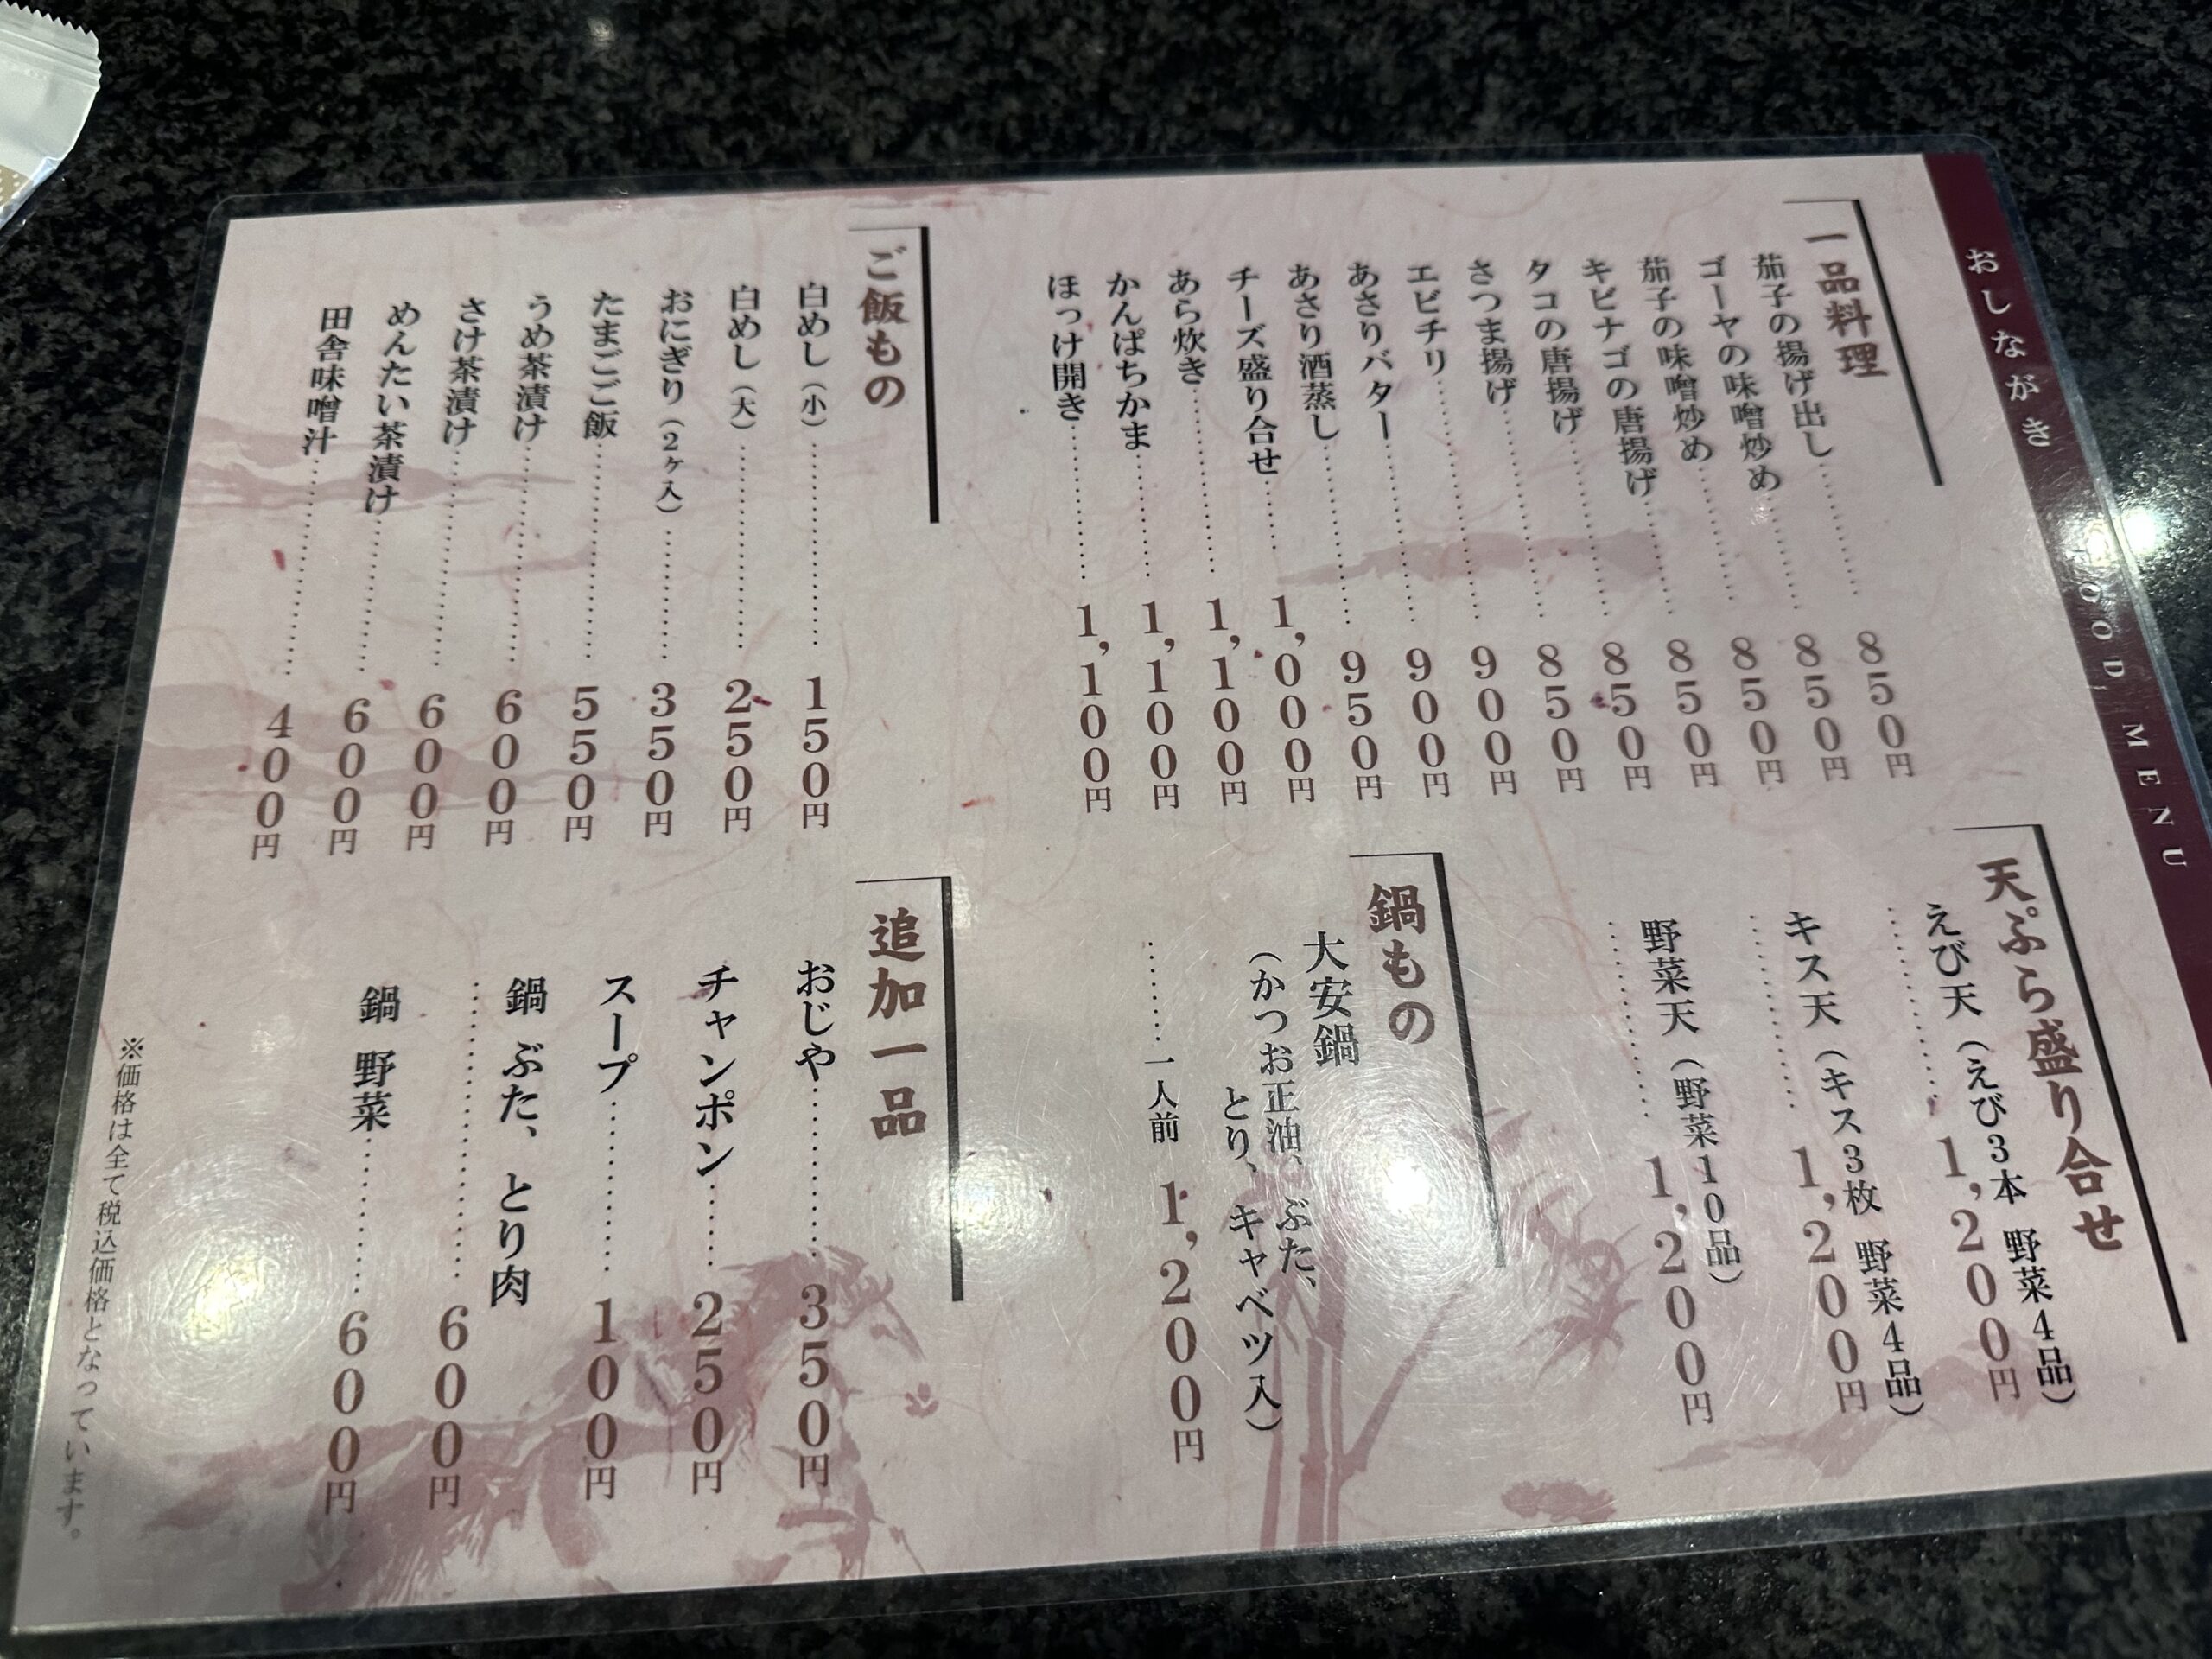 おしながき
FOOD MENU
一品料理
茄子の揚げ出し……850円
ゴーヤの味噌炒め……850円
茄子の味噌炒め……850円
キビナゴの唐揚げ……850円
タコの唐揚げ……850円
さつま揚げ……850円
エビチリ……900円
あさりバター……900円
あさり酒蒸し……950円
チーズ盛り合せ……1,000円
あら炊き……1,100円
かんぱちかま……1,100円
ほっけ開き……1,100円
ご飯もの
白めし（小）……150円
白めし（大）……250円
おにぎり（2ヶ入）……350円
たまごご飯……550円
うめ茶漬け……600円
さけ茶漬け……600円
めんたい茶漬け……600円
田舎味噌汁……400円
天ぷら盛り合せ
えび天（えび3本 野菜4品）
……1,200円
キス天（キス3枚 野菜4品）
……1,200円
野菜天（野菜10品）
……1,200円
鍋もの
大安鍋
（かつお正油、ぶた、
とり、キャベツ入）
……一人前 1,200円
追加一品
おじや……350円
チャンポン……250円
スープ……100円
鍋 ぶた、とり肉
……600円
鍋 野菜……600円
※価格は全て税込価格となっています。